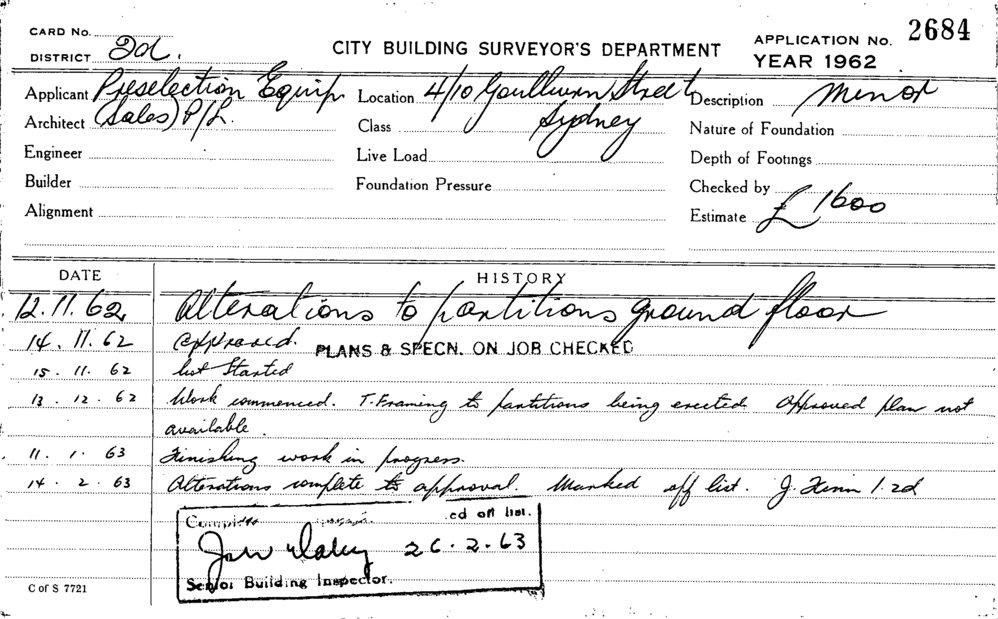 CARD No.
DISTRICT 2d.
CITY BUILDING SURVEYOR'S DEPARTMENT
APPLICATION No. 2684
YEAR 1962
Applicant Preselection Equip.
Location 4/10 Goulburn Street
Description Minor
Architect (Sales) P/L.
Class Sydney
Nature of Foundation
Engineer
Live Load
Depth of Footings
Builder
Foundation Pressure
Checked by
Alignment
Estimate £1600
DATE HISTORY
12.11.62 Alterations to partitions ground floor
14.11.62 Approved. PLANS & SPECN. ON JOB CHECKED
15.11.62 Not Started
13.12.62 Work commenced. T. Framing to partitions being erected. Approved plan not
available.
11.1.63 Finishing work in progress.
14.2.63 Alterations complete to approval. Marked off list. J. 2d
ed off list.
26.2.63
Senior Building Inspector.
C of S 7721